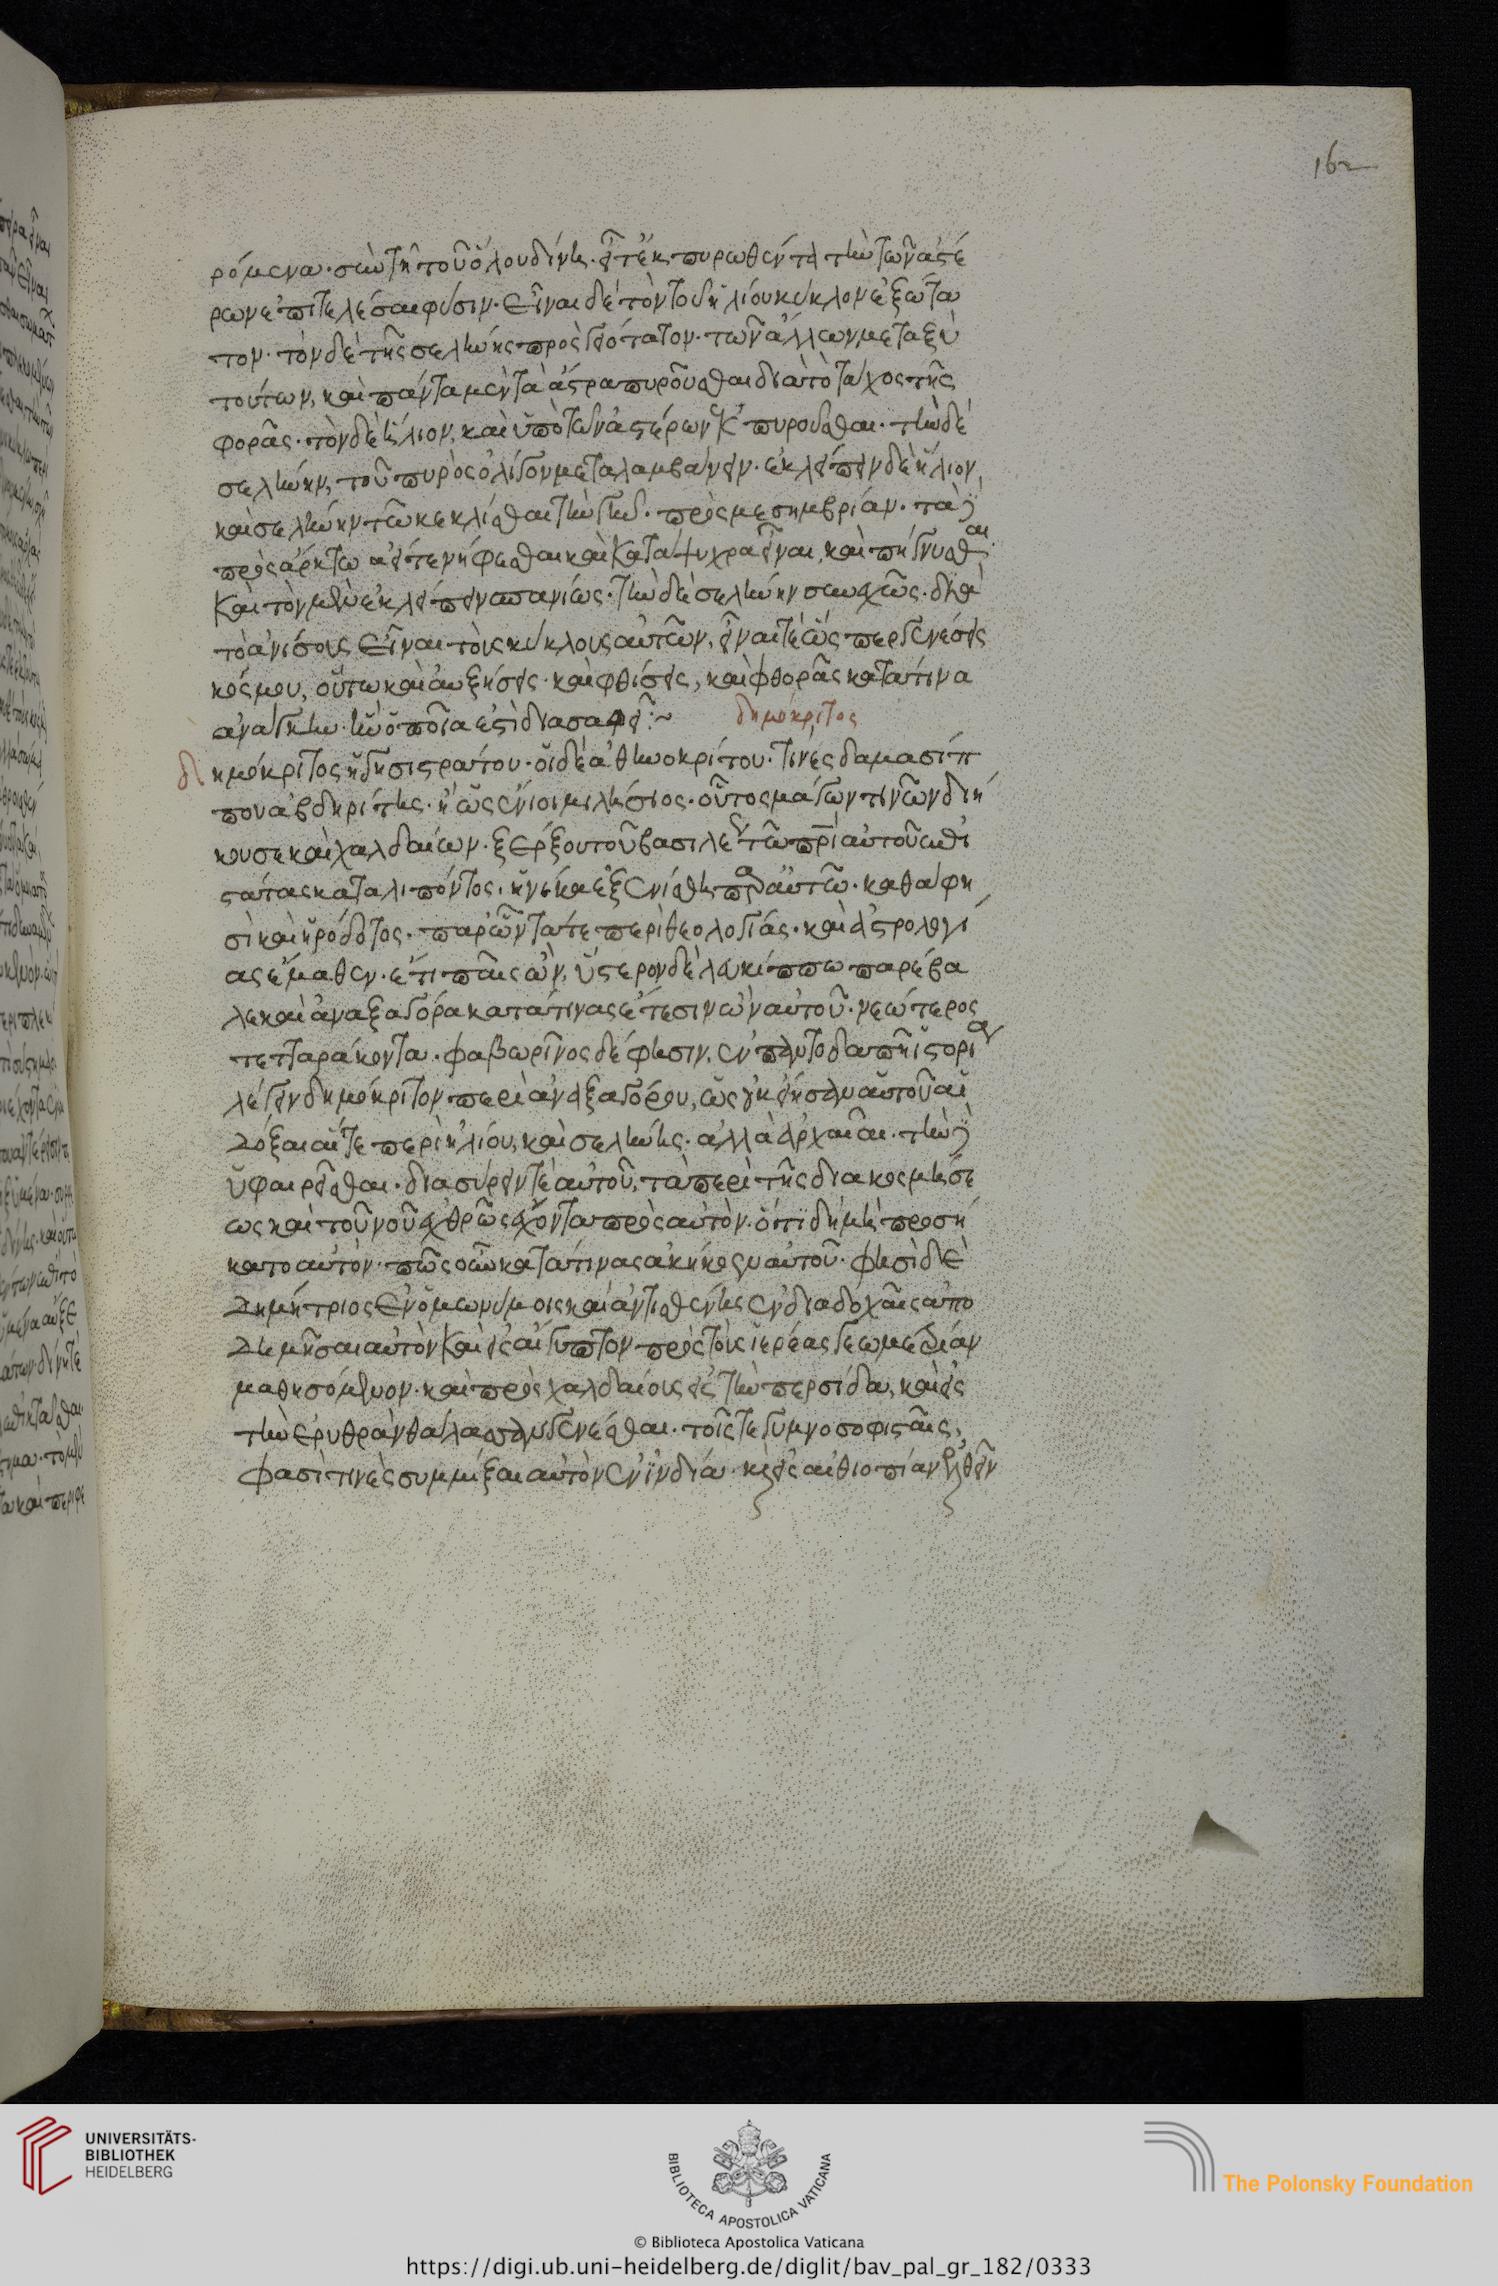 162
ρόμενα· σὺν τῇ τοῦ ὅλου δίνῃ. εἶτ' ἐκπυρωθέντα τὴν τῶν ἀστέ
ρων ἐπιτελέσαι φύσιν. εἶναι δὲ τὸν τοῦ ἡλίου κύκλον ἐξώτα
τον· τὸν δὲ τῆς σελήνης προσγειότατον· τῶν ἄλλων μεταξὺ
τούτων, καὶ πάντα μὲν τὰ ἄστρα πυροῦσθαι διὰ τὸ τάχος τῆς
φορᾶς· τὸν δὲ ἥλιον, καὶ ὑπὸ τῶν ἀστέρων ἐκπυροῦσθαι. τὴν δὲ
σελήνην, τοῦ πυρὸς ὀλίγον μεταλαμβάνειν. ἐκλείπειν δὲ ἥλιον,
καὶ σελήνην τῷ κεκλίσθαι τὴν γῆν. πρὸς μεσημβρίαν. τὰ δὲ
πρὸς ἄρκτω ἀεί τε νήφεσθαι καὶ κατάψυχρα εἶναι, καὶ πήγνυσθαι.
καὶ τὸν μὲν ἐκλείπειν σπανίως. τὴν δὲ σελήνην συνεχῶς. διὰ
τὸ ἀνίσους εἶναι τοὺς κύκλους αὐτῶν. εἶναι τὲ ὥσπερ γενέσεις
κόσμου, οὕτω καὶ αὐξήσεις· καὶ φθίσεις, καὶ φθορὰς κατά τινα
ἀνάγκην. ἣν ὁποία ἐστὶ διασαφεῖ:~ δημόκριτος
δημόκριτος ἡγησιστράτου. οἱ δὲ ἀθηνοκρίτου. τινὲς δαμασίπ
που ἀβδηρίτης. ἢ ὡς ἔνιοι μιλήσιος. οὗτος μάγων τινῶν διή
κουσε καὶ χαλδαίων. ξέρξου τοῦ βασιλέως τῷ πρὶ αὐτοῦ ἐπι
στάτας καταλιπόντος, ἡνίκα ἐξενίσθη παρ' αὐτῷ. καθά φη
σὶ καὶ ἡρόδοτος. παρ' ὧν τά τε περὶ θεολογίας. καὶ ἀστρολογί
ας ἔμαθεν. ἔτι παῖς ὤν. ὕστερον δὲ λευκίππω παρέβα
λε καὶ ἀναξαγόρα κατά τινας ἔτεσιν ὢν αὐτοῦ. νεώτερος
τετταράκοντα. φαβωρῖνος δέ φησιν. ἐν παντοδαπῆ ἱστορία
λέγειν δημόκριτον περὶ ἀναξαγόρου, ὡς οὐκ εἴησαν αὐτοῦ αἱ
δόξαι αἵ τε περὶ ἡλίου, καὶ σελήνης. ἀλλὰ ἀρχαῖαι. τὴν δὲ
ὑφαιρεῖσθαι. διασύρειν τὲ αὐτοῦ, τὰ περὶ τῆς διακοσμήσε
ως καὶ τοῦ νοῦ ἐχθρῶς ἔχοντα πρὸς αὐτὸν. ὅτι δὴ μὴ προσή
κατο αὐτὸν. πῶς οὖν κατά τινας ἀκήκοεν αὐτοῦ. φησὶ δὲ
δημήτριος ἐν ὁμωνύμοις καὶ ἀντισθένης ἐν διαδοχαῖς ἀπο
δημῆσαι αὐτὸν καὶ εἰς αἴγυπτον πρὸς τοὺς ἱερέας γεωμετρίαν
μαθησόμενον. καὶ πρὸς χαλδαίους εἰς τὴν περσίδα, καὶ εἰς
τὴν ἐρυθρὰν θάλασσαν γενέσθαι. τοῖς τε γυμνοσοφισταῖς,
φασί τινὲς συμμίξαι αὐτὸν ἐν ἰνδία. καὶ εἰς αἰθιοπίαν ἐλθεῖν
UNIVERSITÄTS-
BIBLIOTHEK
HEIDELBERG
BIBLIOTECA APOSTOLICA VATICANA
The Polonsky Foundation
© Biblioteca Apostolica Vaticana
https://digi.ub.uni-heidelberg.de/diglit/bav_pal_gr_182/0333